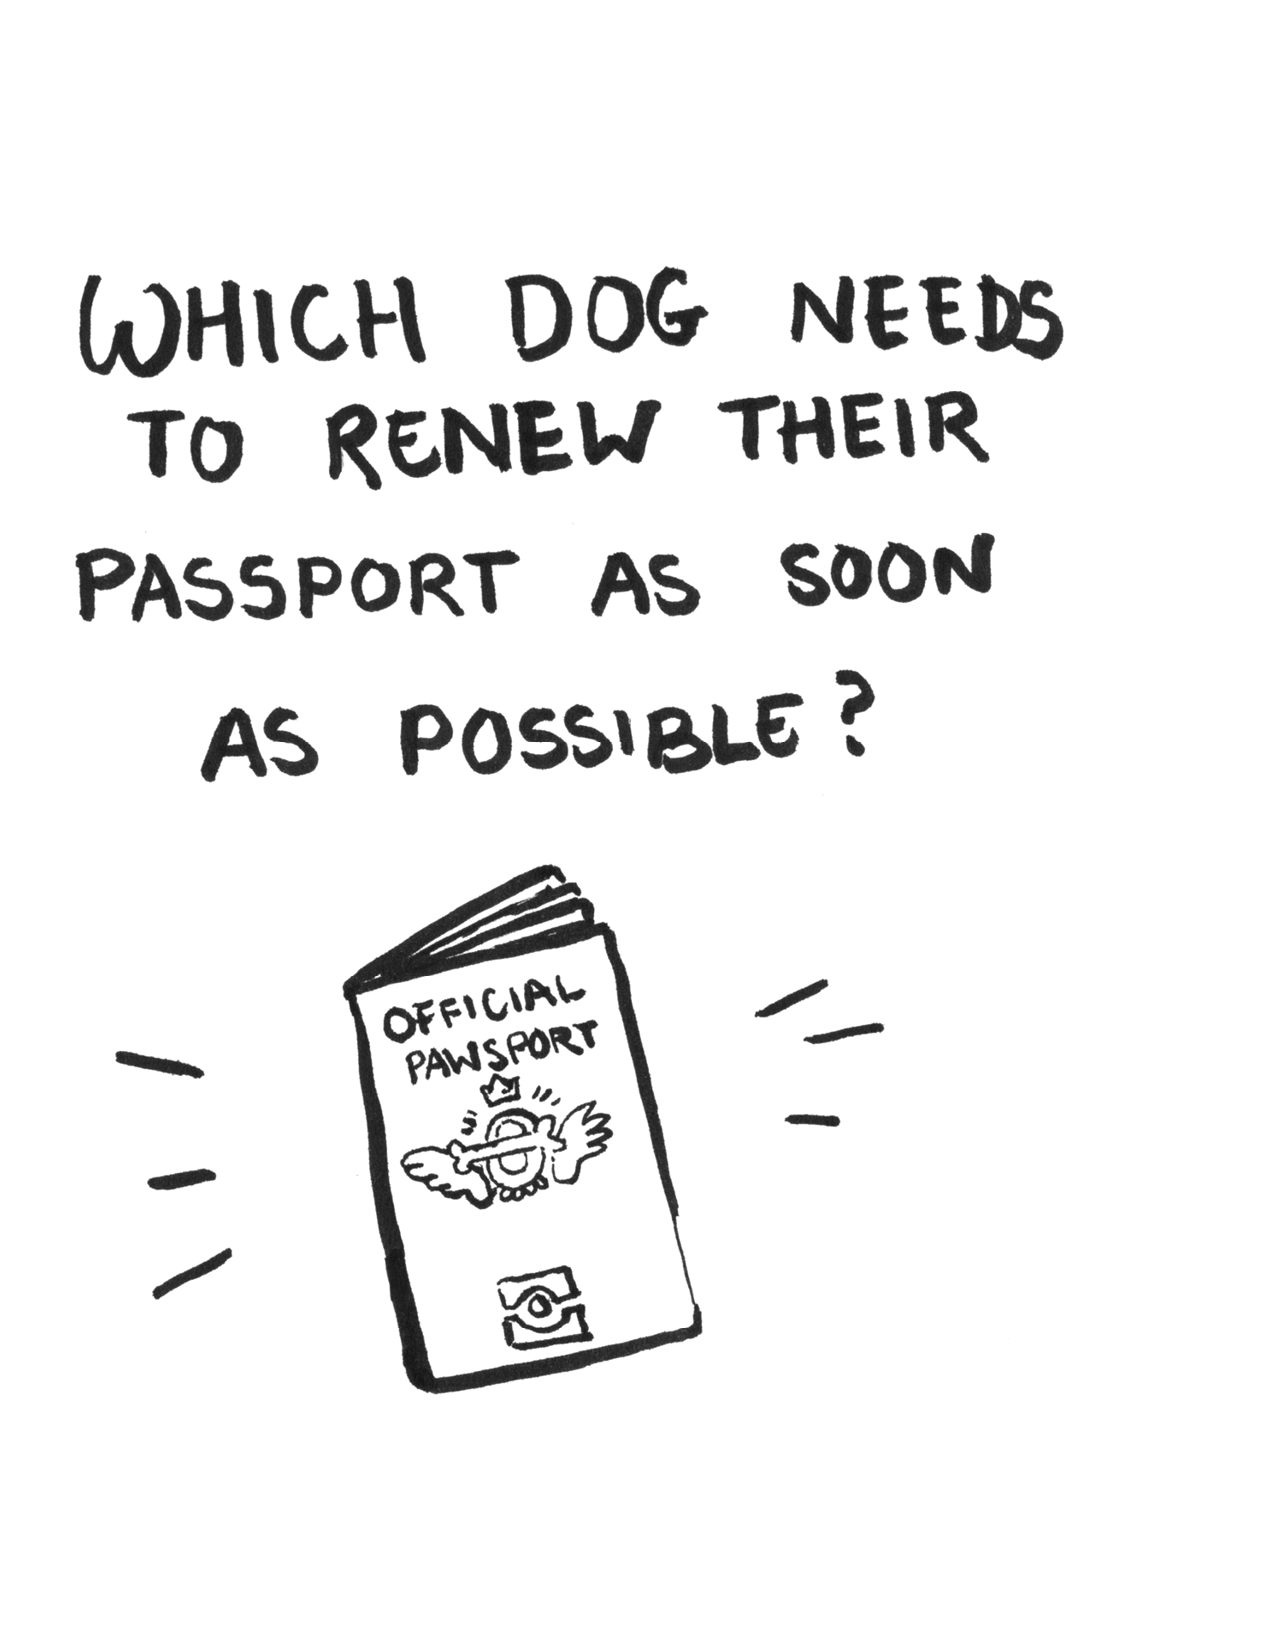 WHICH DOG NEEDS
TO RENEW THEIR
PASSPORT AS SOON
AS POSSIBLE?
OFFICIAL
PAWSPORT